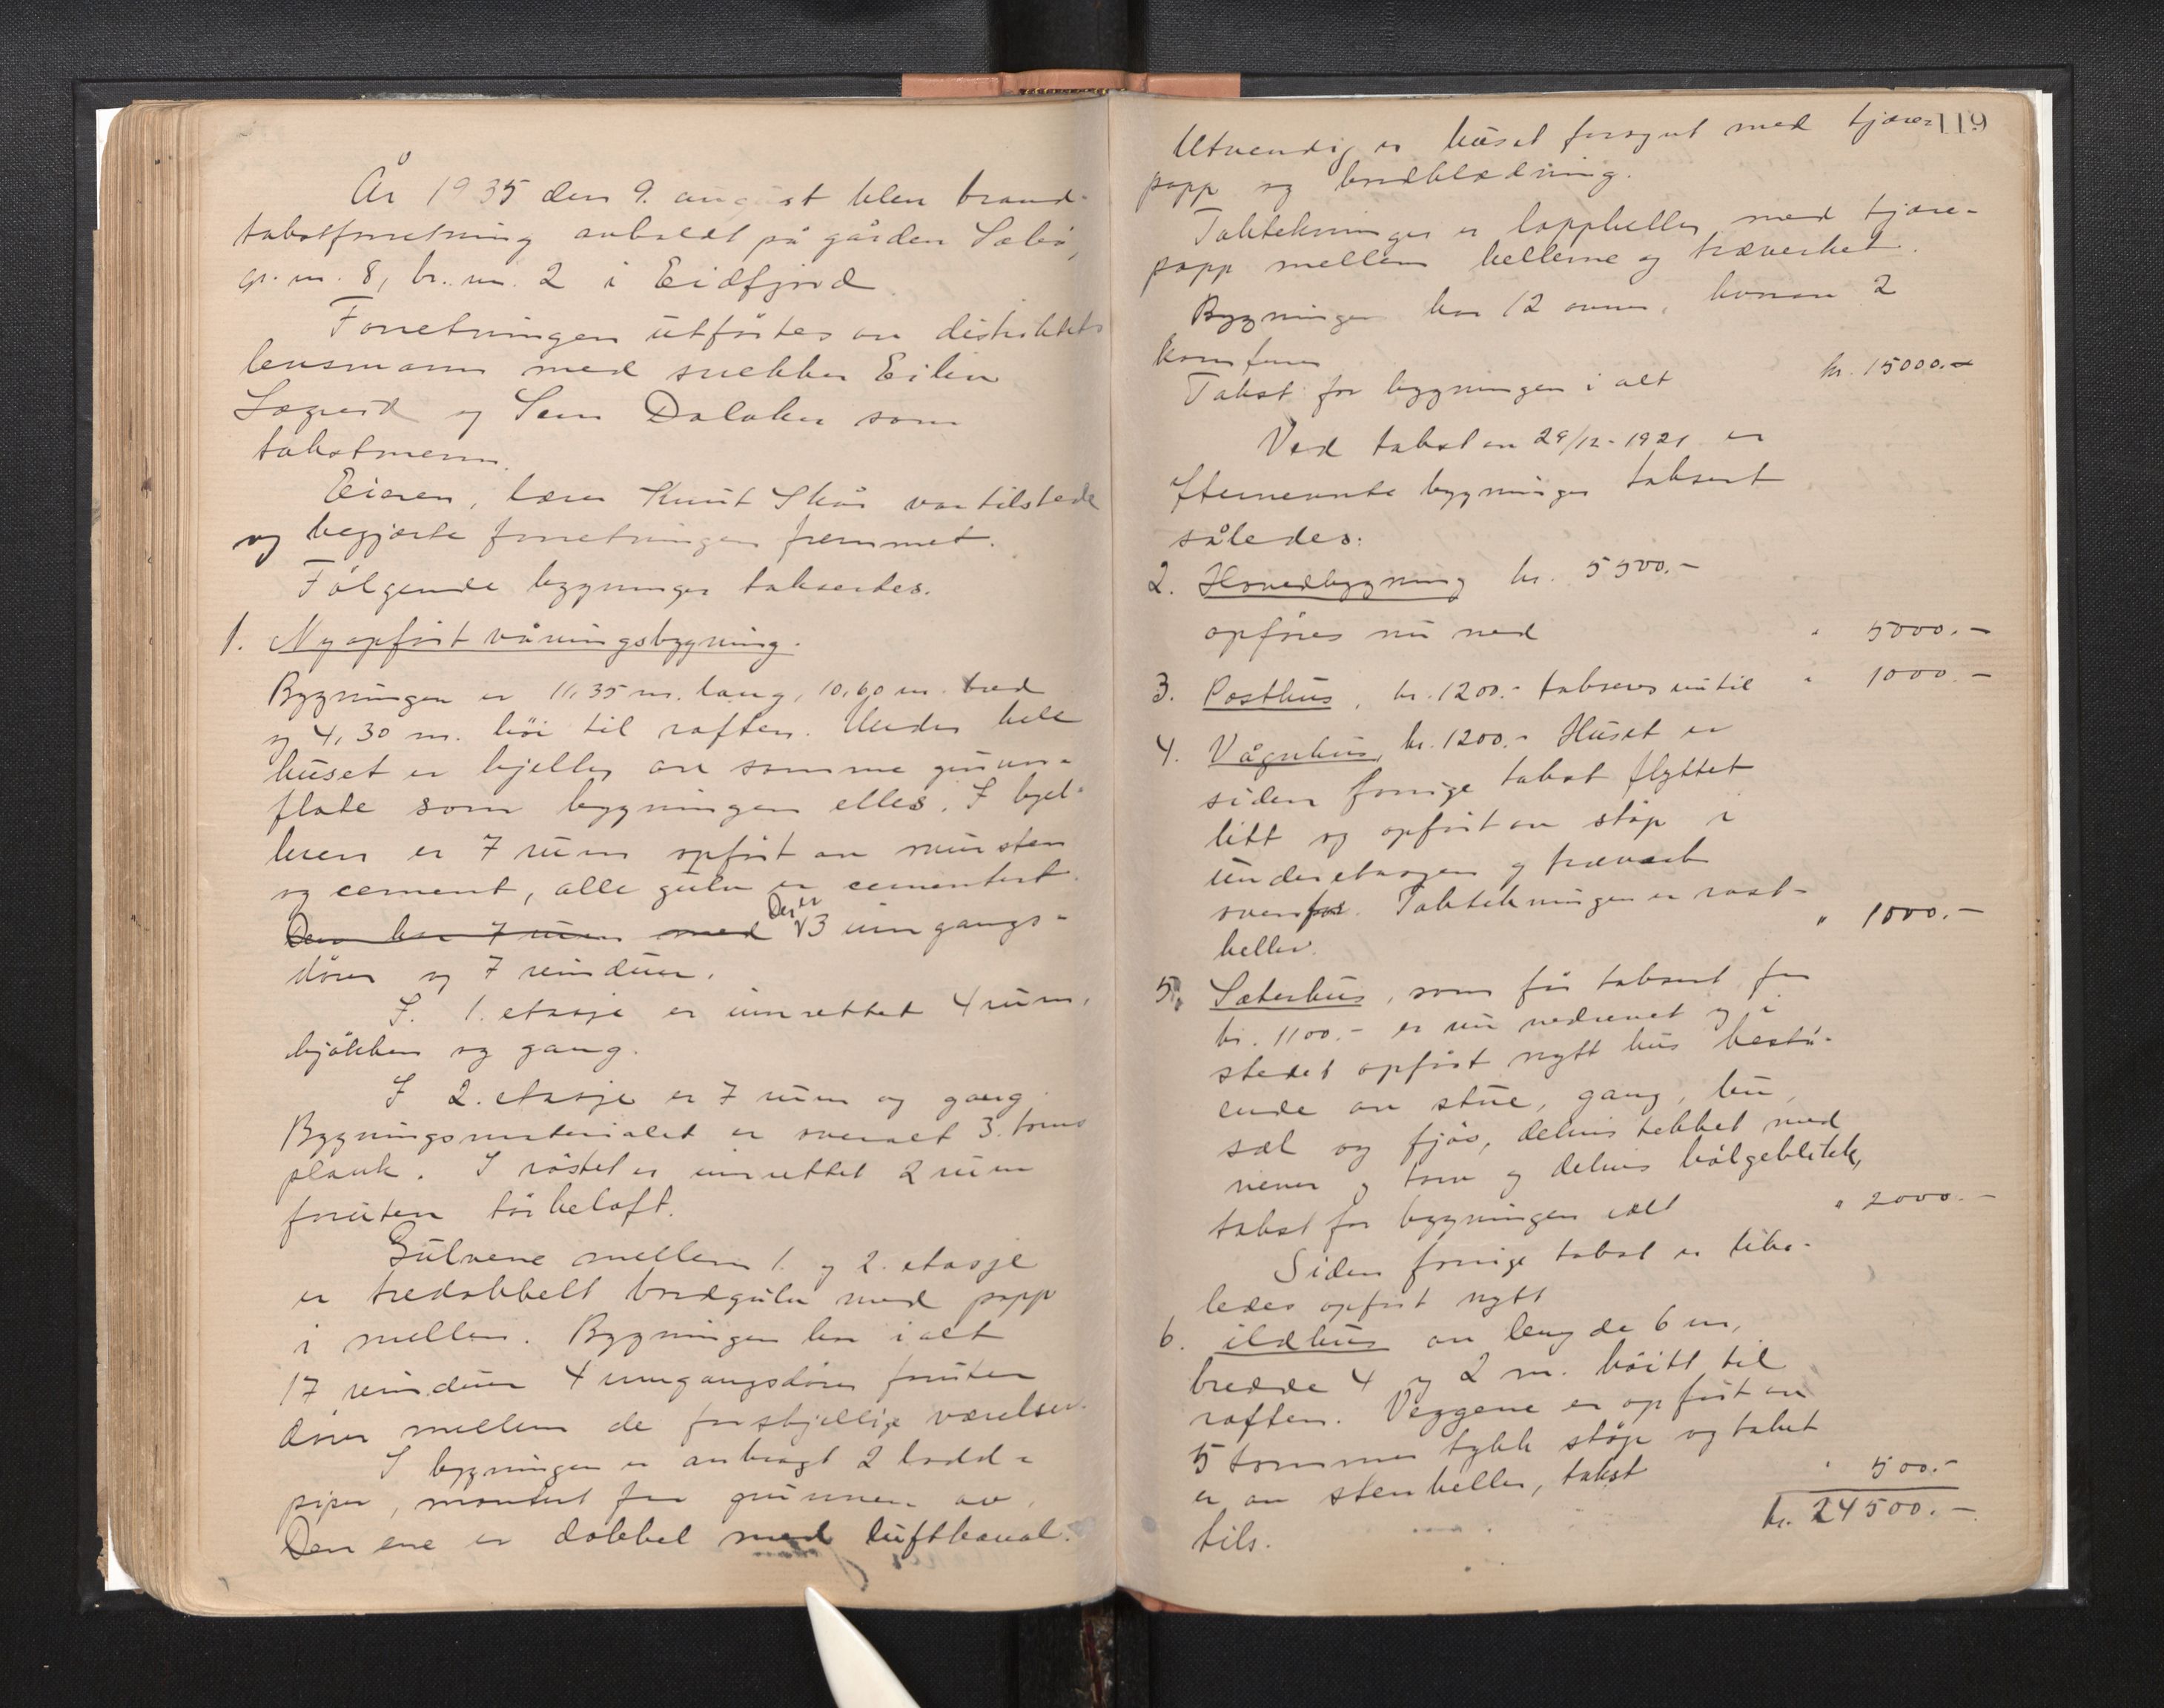 År 1935 den 9. august blev brand-
takstforretning avholdt på gården Sæbö,
gr. nr. 8, br. nr. 2 i Eidfjord
Forretningen utförtes av distriktets
lensmann med snekker Eiliv
Sægreid og Sem Dalaker som
takstmenn.
Eieren, lærer Knut Skår var tilstede
og begjærte forretningen fremmet.
Fölgende bygninger taksertes.
1. Nyopfört våningsbygning.
Bygningen er 11,35 m. lang, 10,60 m. bred
og 4,30 m. höi til raften. Under hele
huset er kjeller av samme grunn-
flate som bygningen elles. I kjel-
leren er 7 rum opfört av mursten
og cement, alle gulv er cementert.
Den har 7 rum med Der er 3 inngangs-
dörer og 7 vinduer.
I. 1. etasje er innrettet 4 rum,
kjökken og gang.
I 2. etasje er 7 rum og gang
Bygningsmaterialet er overalt 3. toms
plank. I röstet er innrettet 2 rum
foruten törkeloft.
Gulvene mellem 1. og 2. etasje
er tredobbelt bordgulv med papp
i mellem. Bygningen har i alt
17 vinduer 4 inngangsdörer foruten
dörer mellem de forskjellige værelser.
I bygningen er anbragt 2 
piper, montert fra grunnen av.
Den ene er dobbel med luftkanal.
119
Utvendig er huset forsynt med tjære-
papp og bordklædning.
Taktekningen er lappheller med tjære-
papp mellem hellerne og træverket.
Bygningen har 12 ovner, hvorav 2
komfurer
Takst for bygningen i alt kr. 15000.-
Ved takst av 29/12-1921 er
efternevnte bygninger taksert
således:
2. Hovedbygning kr. 5500.-
opföres nu med " 5000.-
3. Posthus, kr. 1200.- takseres nu til " 1000.-
4. Vågnhus, kr. 1200.- Huset er
siden forrige takst flyttet
litt og opfört av stöp i
underetasjen og træverk
ovenfor. Taktekningen er rast-
heller. " 1000.-
5. Sæterhus, som för taksert for
kr. 1100.- er nu nedrevet og i
stedet opfört nytt hus bestå-
ende av stue, gang, bu,
sæl og fjös, delvis tekket med
never og torv og delvis bölgeblikk,
takst for bygningen ialt " 2000.-
Siden forrige takst er like-
ledes opfört nytt
6. ildhus av lengde 6 m,
bredde 4 og 2 m. höitt til
raften. Veggene er opfört av
5 tommer tykk stöp og taket
er av stenheller, takst " 500.-
tils. kr. 24500.-